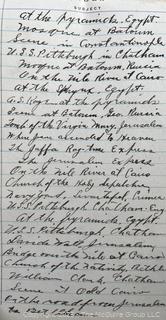 SUBJECT
At the pyramids, Egypt.
Mosque at Batoum
Scene in Constantinople
U.S.S Pittsburgh in Chatham
Mosque at Batoum, Russia
On the Nile River at Cairo
At the Sphynx, Egypt.
at the pyramids
Scene at Batoum, Geo. Russia
Tomb of the Virgin Mary, Jerusalem
Where from ascended to Heaven
The Jaffa Ry-time Express
The Jerusalem Express
On the Nile River at Cairo
Church of the Holy Sepulchre
Navy yard,
U.S.S. Pittsburgh, Chatham, Eng
At the pyramids, Egypt.
U.S.S. Pittsburgh, Chatham
Davids Wall, Jerusalem
Bridge over the Nile at Cairo
Church of the Nativity, Bethle
William Clark, Chatham
Scene in Old Cairo
On the road from Jerusalem
to Bethlehem